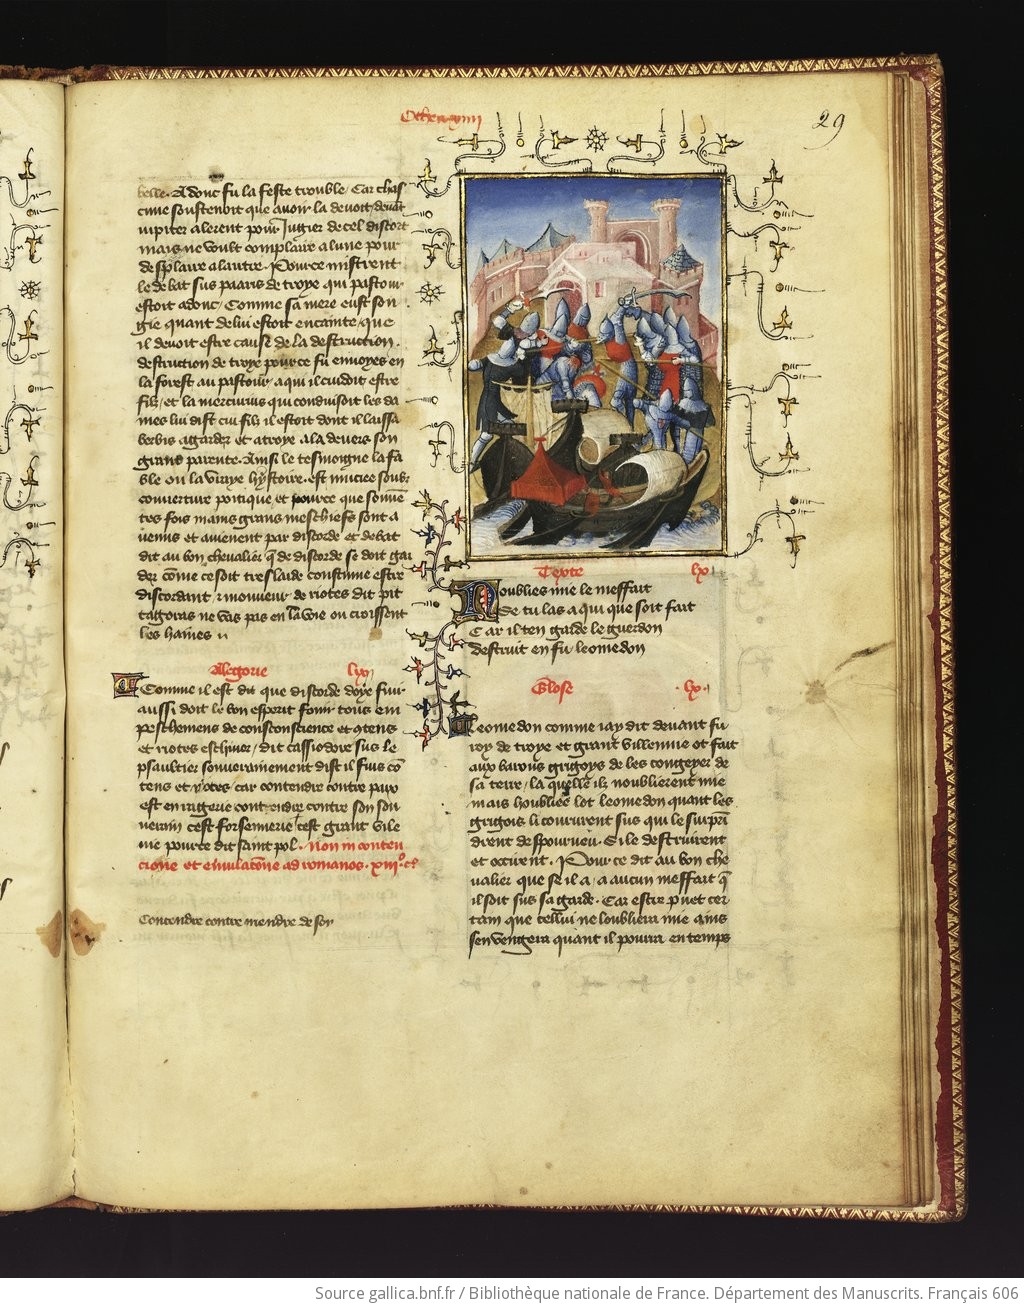 29
belle. Adonc fu la feste trouble. Car chas
cune soustenoit que avoir la devoit devant
iupiter alerent pour Jugier de cel discort
mais ne voult complaire a lune pour
desplaire a lautre. Pource mistrent
le debat sus paaris de troye qui pastour
estoit adonc. Comme sa mere eust son
gie quant de lui estoit encainte que
il devoit estre cause de la destruction.
destruction de troye pource fu envoyes en
la forest au pastour a qui il cuidoit estre
filz et la mercurius qui conduisoit les da
mes lui dist cui filz il estoit dont il laissa
berbis a garder et a troye ala devers son
grant parente. Ainsi le tesmoigne la fa
ble ou la vraye hystoire est muciee soubz
couverture poetique et pource que souve
tes fois mains grans meschiefs sont a
venus et avienent par discorde et debat
dit au bon chevalier q̄ de discorde se doit gar
der cōme ce soit tres laide coustume estre
discordant et mouveur de riotes dit pit
tagoras ne vas pas en la voie ou croissent
les haines
Alegorie lix
Comme il est dit que discorde doye fuir
aussi doit le bon esperit fouir tous em
peschemens de consconscience et 9tens
et riotes eschiver / dit cassiodore sus le
psaultier souverainement dist il fuis cō
tens et ryotes car contendre contre paix
est enragerie contendre contre son sou
verain cest forsennerie cest grant vile
nie pource dit saint pol. Non in conten
cione et emulatōne ad romanos. xiii°. c°
Contendre contre mendre de soy
Texte lx
Noublies mie le meffait
Se tu las a qui que soit fait
Car il ten garde le guerdon
destruit en fu leomedon
Glose lx.
Leomedon comme iay dit devant fu
roy de troye et grant villennie ot fait
aux barons grigoys de les congeyer de
sa terre / la quelle ilz noublierent mie
mais houbliee lot leomedon quant les
grigois li coururent sus qui le surpri
drent despourveu. Si le destruirent
et occirent. Pour ce dit au bon che
valier que se il a a aucun meffait q̄
il soit sus sa garde. Car estre puet cer
tain que cellui ne loubliera mie ains
sen vengera quant il pourra en temps
Source gallica.bnf.fr / Bibliothèque nationale de France. Département des Manuscrits. Français 606